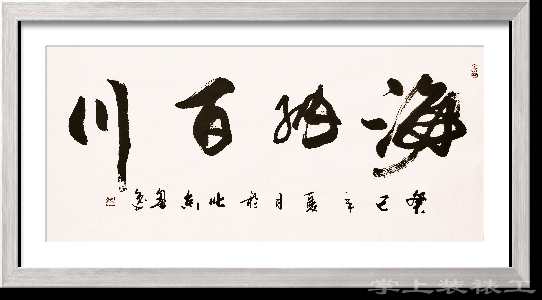 海纳百川
癸巳年夏月於北京
掌上装裱工